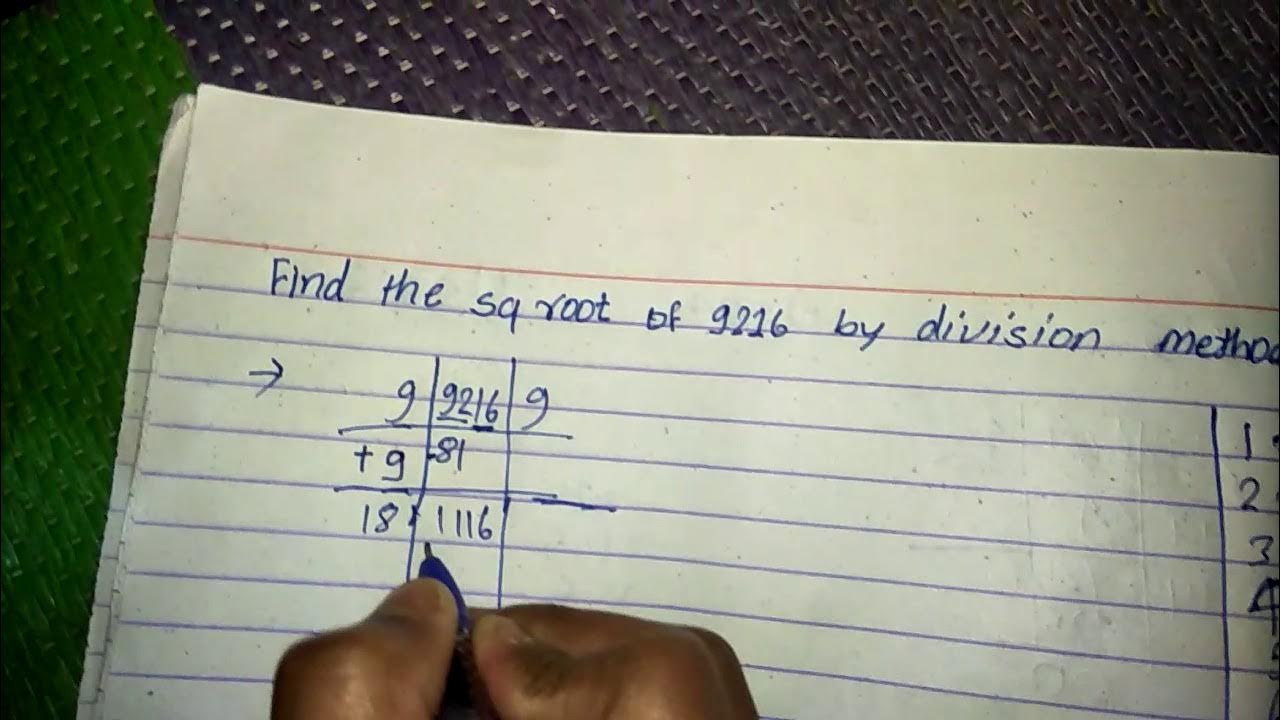 Find the sq root of 9216 by division
→ 9 9216 9
+ 9 -81
18 1116
1
2
3
4